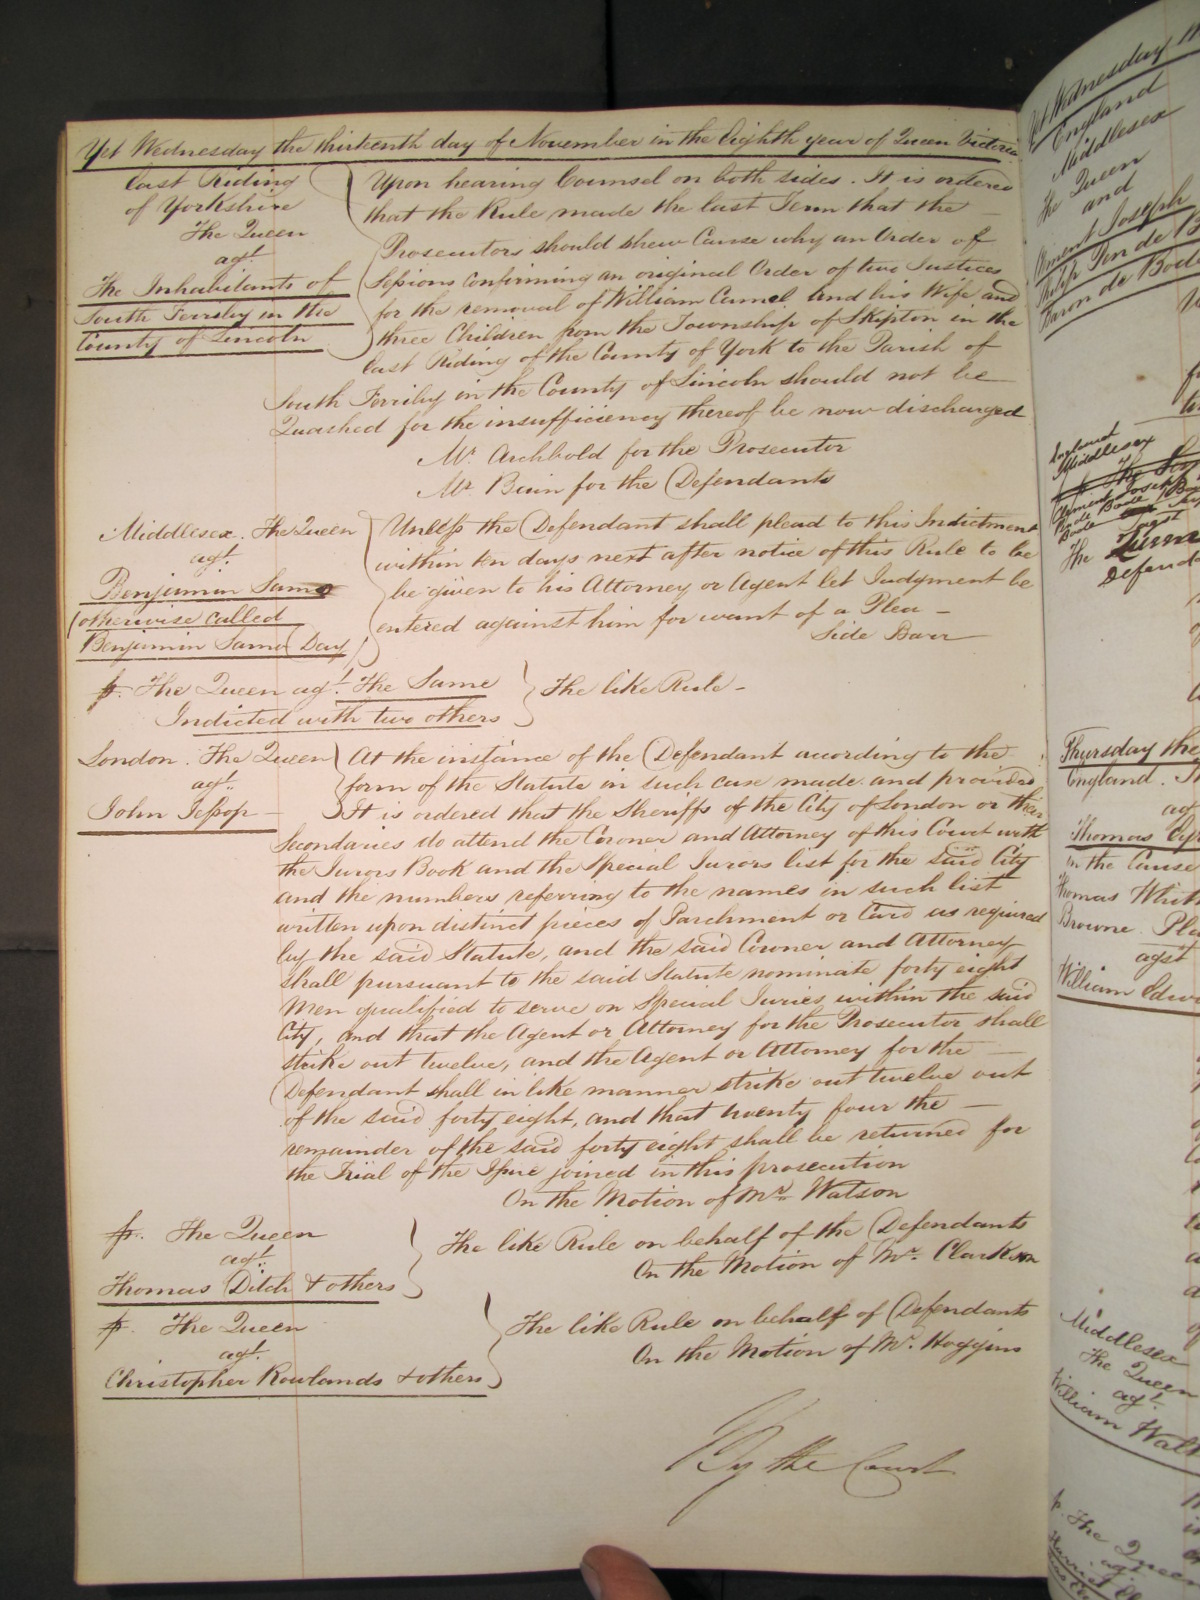 Yet Wednesday the thirteenth day of November in the Eighth year of Queen Victoria
East Riding
of Yorkshire
The Queen
agt
The Inhabitants of
South Ferriby in the
County of Lincoln
Upon hearing Counsel on both sides. It is ordered
that the Rule made the last Term that the
Prosecutors should shew Cause why an Order of
Sessions Confirming an original Order of two Justices
for the removal of William Camel and his Wife and
three Children from the Township of Skipton in the
East Riding of the County of York to the Parish of
South Ferriby in the County of Lincoln should not be
Quashed for the insufficiency thereof be now discharged
Mr. Archbold for the Prosecutor
Mr. for the Defendants
Middlesex. The Queen
agt.
Benjamin Samo
(otherwise called
Benjamin Samo Day)
Unless the Defendant shall plead to this Indictment
within ten days next after notice of this Rule to be
be given to his Attorney or Agent let Judgment be
entered against him for want of a Plea -
Side Barr
fr. The Queen agt. The Same
Indicted with two others
The like Rule -
London. The Queen
agt.
John Jessop
At the instance of the Defendant according to the
form of the Statute in such case made and provided
It is ordered that the Sheriffs of the City of London or their
Secondaries do attend the Coroner and Attorney of this Court with
the Jurors Book and the Special Jurors list for the said City
and the numbers referring to the names in such list
written upon distinct pieces of Parchment or Card as required
by the said Statute, and the said Coroner and Attorney
shall pursuant to the said Statute nominate forty eight
Men qualified to serve on Special Juries within the said
City, and that the Agent or Attorney for the Prosecutor shall
strike out twelve, and the Agent or Attorney for the
Defendant shall in like manner strike out twelve out
of the said forty eight, and that twenty four the
remainder of the said forty eight shall be returned for
the Trial of the Issue joined in this prosecution
On the Motion of Mr. Watson
fr. The Queen
agt.
Thomas Ditch & others
The like Rule on behalf of the Defendants
On the Motion of Mr. Clarkson
fr. The Queen
agt.
Christopher Rowlands & others
The like Rule on behalf of Defendants
On the Motion of Mr. Hoggins
By the Court
Yet Wednesday
England
Middlesex
The Queen
and
Joseph
Baron de Bode
England
Middlesex
The
Thursday the
England.
agt
Thomas
in the Cause
Thomas
Browne
agst
William
Middlesex
The Queen
agt.
William
fr. The Queen
agt.